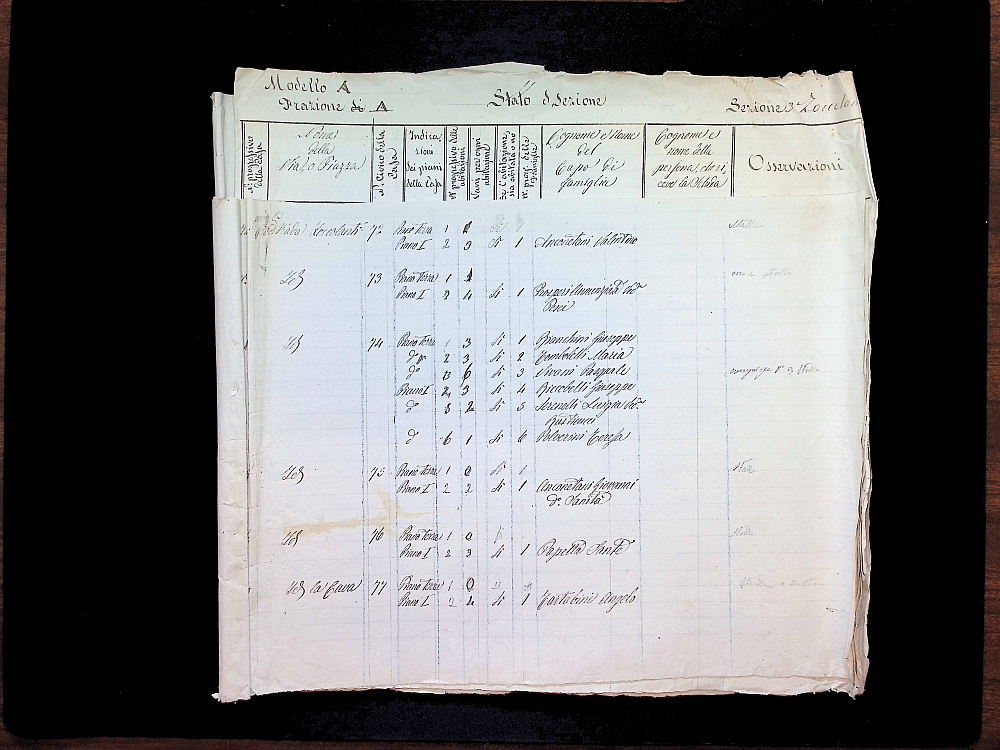 Modello A
Frazione di A
Stato di Sezione
Sezione 3ª Zoccolan
N° progressivo della Casa
Nome della Via, o Piazza
N° Civico della Casa
Indicazioni dei piani della Casa
N° progressivo delle abitazioni
Vani per ogni abitazione
Se l'abitazione sia abitata o no
N° prog. delle famiglie
Cognome e Nome del Capo di famiglia
Cognome e nome della persona, che riceve la Scheda
Osservazioni
Contrada Zoccolanti 72 Piano terra 1 0 Stalla
Piano I° 2 3 Si 1 Anconetani Valentino
Id 73 Piano terra 1 1
Piano I° 2 4 Si 1 Prosperi Annunziata
Id 74 Piano terra 1 3 Si 1 Bianchini Giuseppe
d° 2 3 Si 2 Gomboletti Maria
d° 3 6 Si 3 Viviani Pasquale
Piano I° 4 3 Si 4 Riccobelli Giuseppe
d° 5 2 Si 5 Serenelli Luigia
d° 6 1 Si 6 Polverini Teresa
Id 75 Piano terra 1 0 Stalla
Piano I° 2 2 Si 1 Anconetani Giovanni
d° Sanità
Id 76 Piano terra 1 0 Stalla
Piano I° 2 3 Si 1 Papetta Sante
Id la Cava 77 Piano terra 1 0
Piano I° 2 4 Si 1 Tartabini Angelo